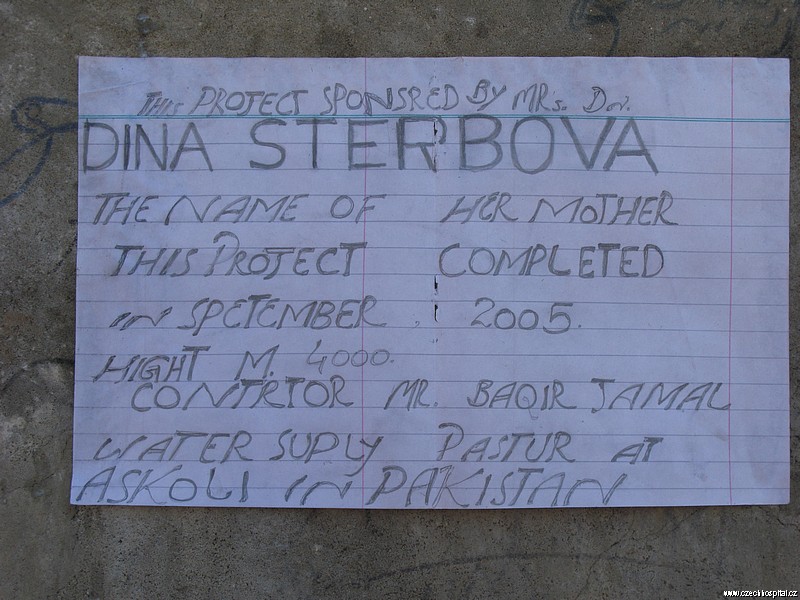 THIS PROJECT SPONSRED BY MR's. Dr.
DINA STERBOVA
THE NAME OF HER MOTHER
THIS PROJECT COMPLETED
IN SPETEMBER 2005.
HIGHT M. 4000.
CONTRTOR MR. BAQIR JAMAL
WATER SUPLY PASTUR AT
ASKOLI IN PAKISTAN
www.czechhospital.cz